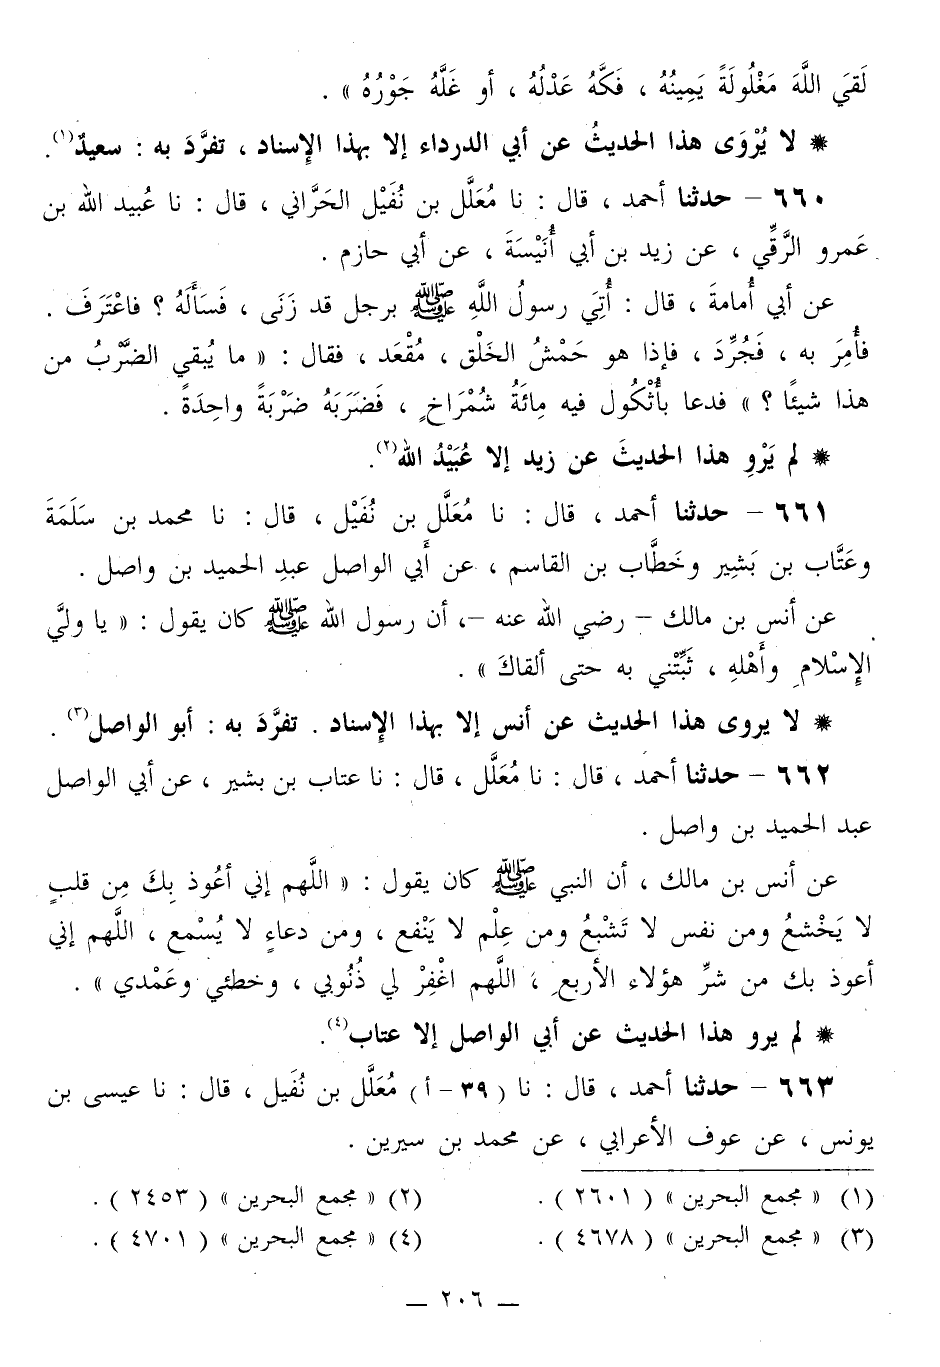 لَقيَ اللَّهَ مَغْلُولَةً يَمِينُهُ ، فَكَّهُ عَدْلُهُ ، أو غَلَّهُ جَوْرُهُ » .
* لا يُرْوَى هذا الحديثُ عن أبي الدرداء إلا بهذا الإسناد ، تفرَّدَ به : سعيدٌ(١).
٦٦٠ – حدثنا أحمد ، قال : نا مُعَلَّل بن نُفَيْل الحَرَّاني ، قال : نا عُبيد الله بن
عَمرو الرَّقِّي ، عن زيد بن أبي أُنَيْسَةَ ، عن أبي حازم .
عن أبي أُمامةَ ، قال : أُتِيَ رسولُ اللَّهِ ﷺ برجل قد زَنَى ، فَسَأَلَهُ ؟ فاعْتَرَفَ .
فأُمِرَ به ، فَجُرِّدَ ، فإذا هو حَمْشُ الخَلْق ، مُقْعَد ، فقال : « ما يُبقي الضَّرْبُ من
هذا شيئًا ؟ » فدعا بأُثْكُول فيه مِائَةُ شُمْرَاخٍ ، فَضَرَبَهُ ضَرْبَةً واحِدَةً .
* لم يَرْوِ هذا الحديثَ عن زيد إلا عُبَيْدُ الله(٢).
٦٦١ – حدثنا أحمد ، قال : نا مُعَلَّل بن نُفَيْل ، قال : نا محمد بن سَلَمَةَ
وعَتَّاب بن بَشِير وخَطَّاب بن القاسم ، عن أَبي الواصل عبدِ الحميد بن واصل .
عن أنس بن مالك – رضي الله عنه –، أن رسول الله ﷺ كان يقول : « يا وليَّ
الإِسْلامِ وأَهْلهِ ، ثَبِّتْني به حتى ألقاكَ » .
* لا يروى هذا الحديث عن أنس إلا بهذا الإسناد . تفرَّدَ به : أبو الواصل(٣) .
٦٦٢ – حدثنا أحمد ، قال : نا مُعَلَّل ، قال : نا عتاب بن بشير ، عن أبي الواصل
عبد الحميد بن واصل .
عن أنس بن مالك ، أن النبي ﷺ كان يقول : « اللَّهم إني أعُوذ بِكَ مِن قلبٍ
لا يَخْشعُ ومن نفس لا تَشْبَعُ ومن عِلْم لا يَنْفع ، ومن دعاءٍ لا يُسْمع ، اللَّهم إني
أعوذ بك من شرِّ هؤلاء الأربعِ ، اللَّهم اغْفِرْ لي ذُنُوبي ، وخطئي وعَمْدي » .
* لم يرو هذا الحديث عن أبي الواصل إلا عتاب(٤).
٦٦٣ – حدثنا أحمد ، قال : نا ( ٣٩ – أ ) مُعَلَّل بن نُفَيل ، قال : نا عيسى بن
يونس ، عن عوف الأعرابي ، عن محمد بن سيرين .
(١) « مجمع البحرين » ( ٢٦٠١ ) . (٢) « مجمع البحرين » ( ٢٤٥٣ ) .
(٣) « مجمع البحرين » ( ٤٦٧٨ ) . (٤) « مجمع البحرين » ( ٤٧٠١ ) .
– ٢٠٦ –